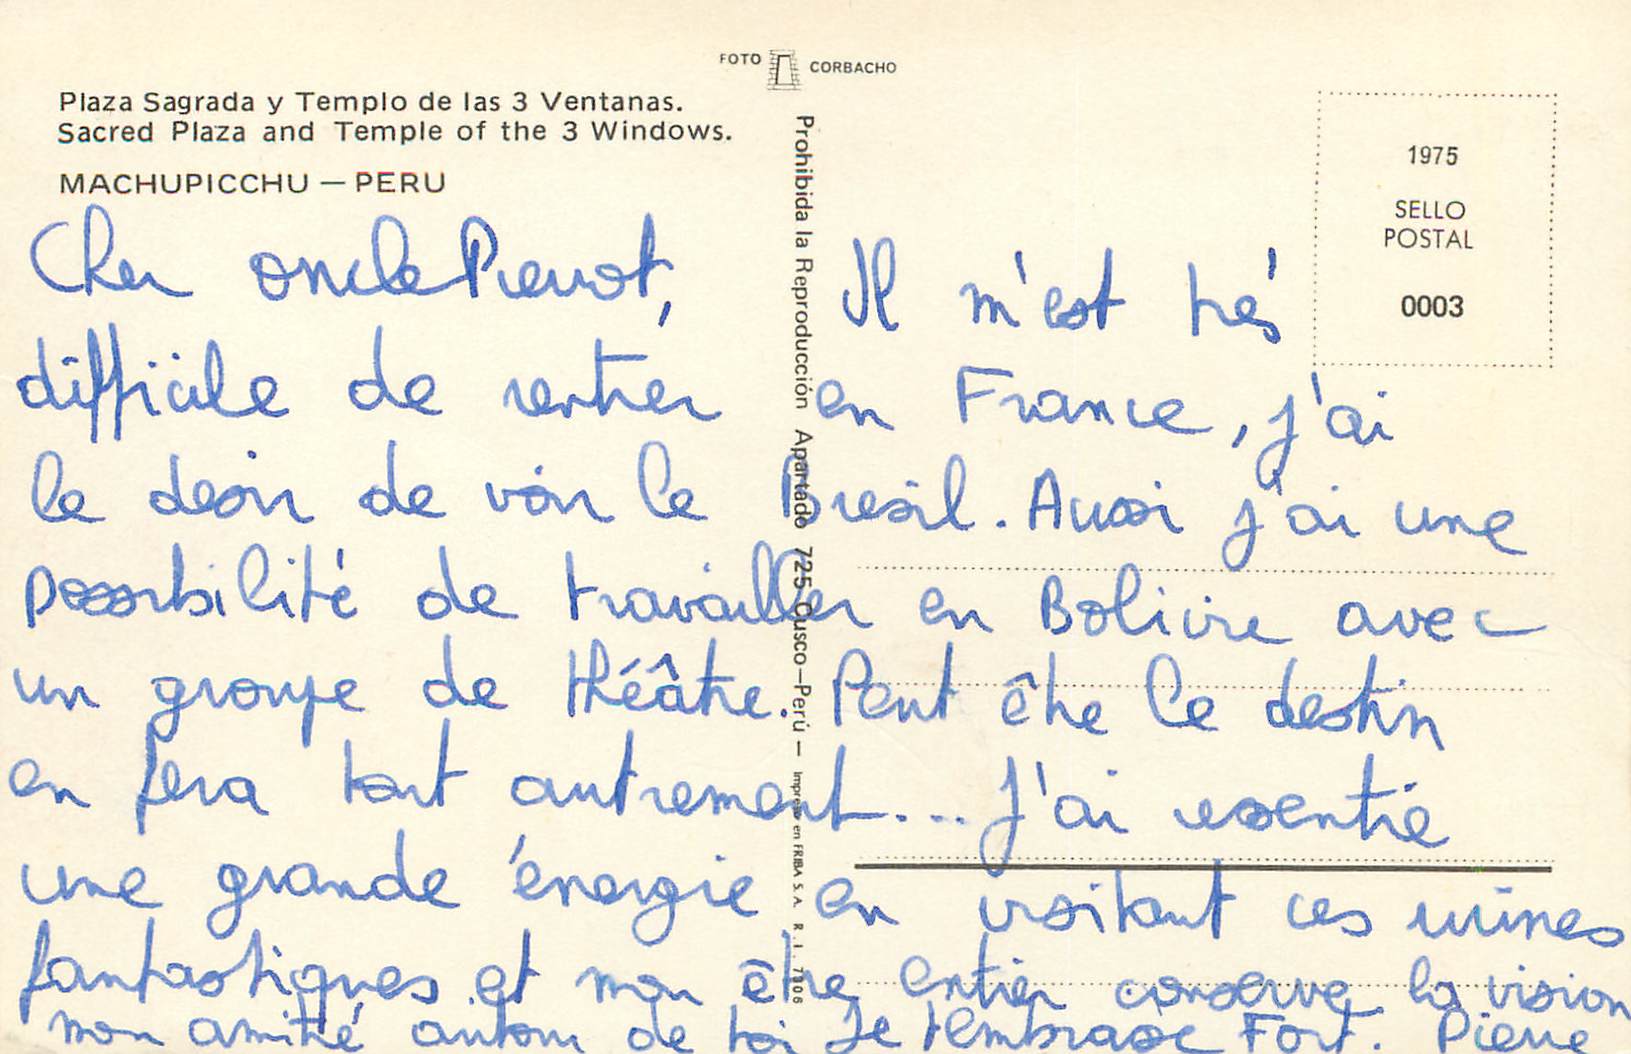 FOTO CORBACHO
Plaza Sagrada y Templo de las 3 Ventanas.
Sacred Plaza and Temple of the 3 Windows.
MACHUPICCHU — PERU
1975
SELLO
POSTAL
0003
Prohibida la Reproducción Apartado 725 Cusco—Perú — Impreso en FRIBA S.A. R. I. 7906
Cher oncle Pierrot, Il m'est très
difficile de rentrer en France, j'ai
le desir de voir le Bresil. Aussi j'ai une
possibilité de travailler en Bolivie avec
un groupe de théâtre. Peut être le destin
en fera tout autrement... J'ai ressentie
une grande énergie en visitant ces ruines
fantastiques et mon être entier conserve la vision
mon amitié autour de toi Je t'embrasse Fort. Pierre